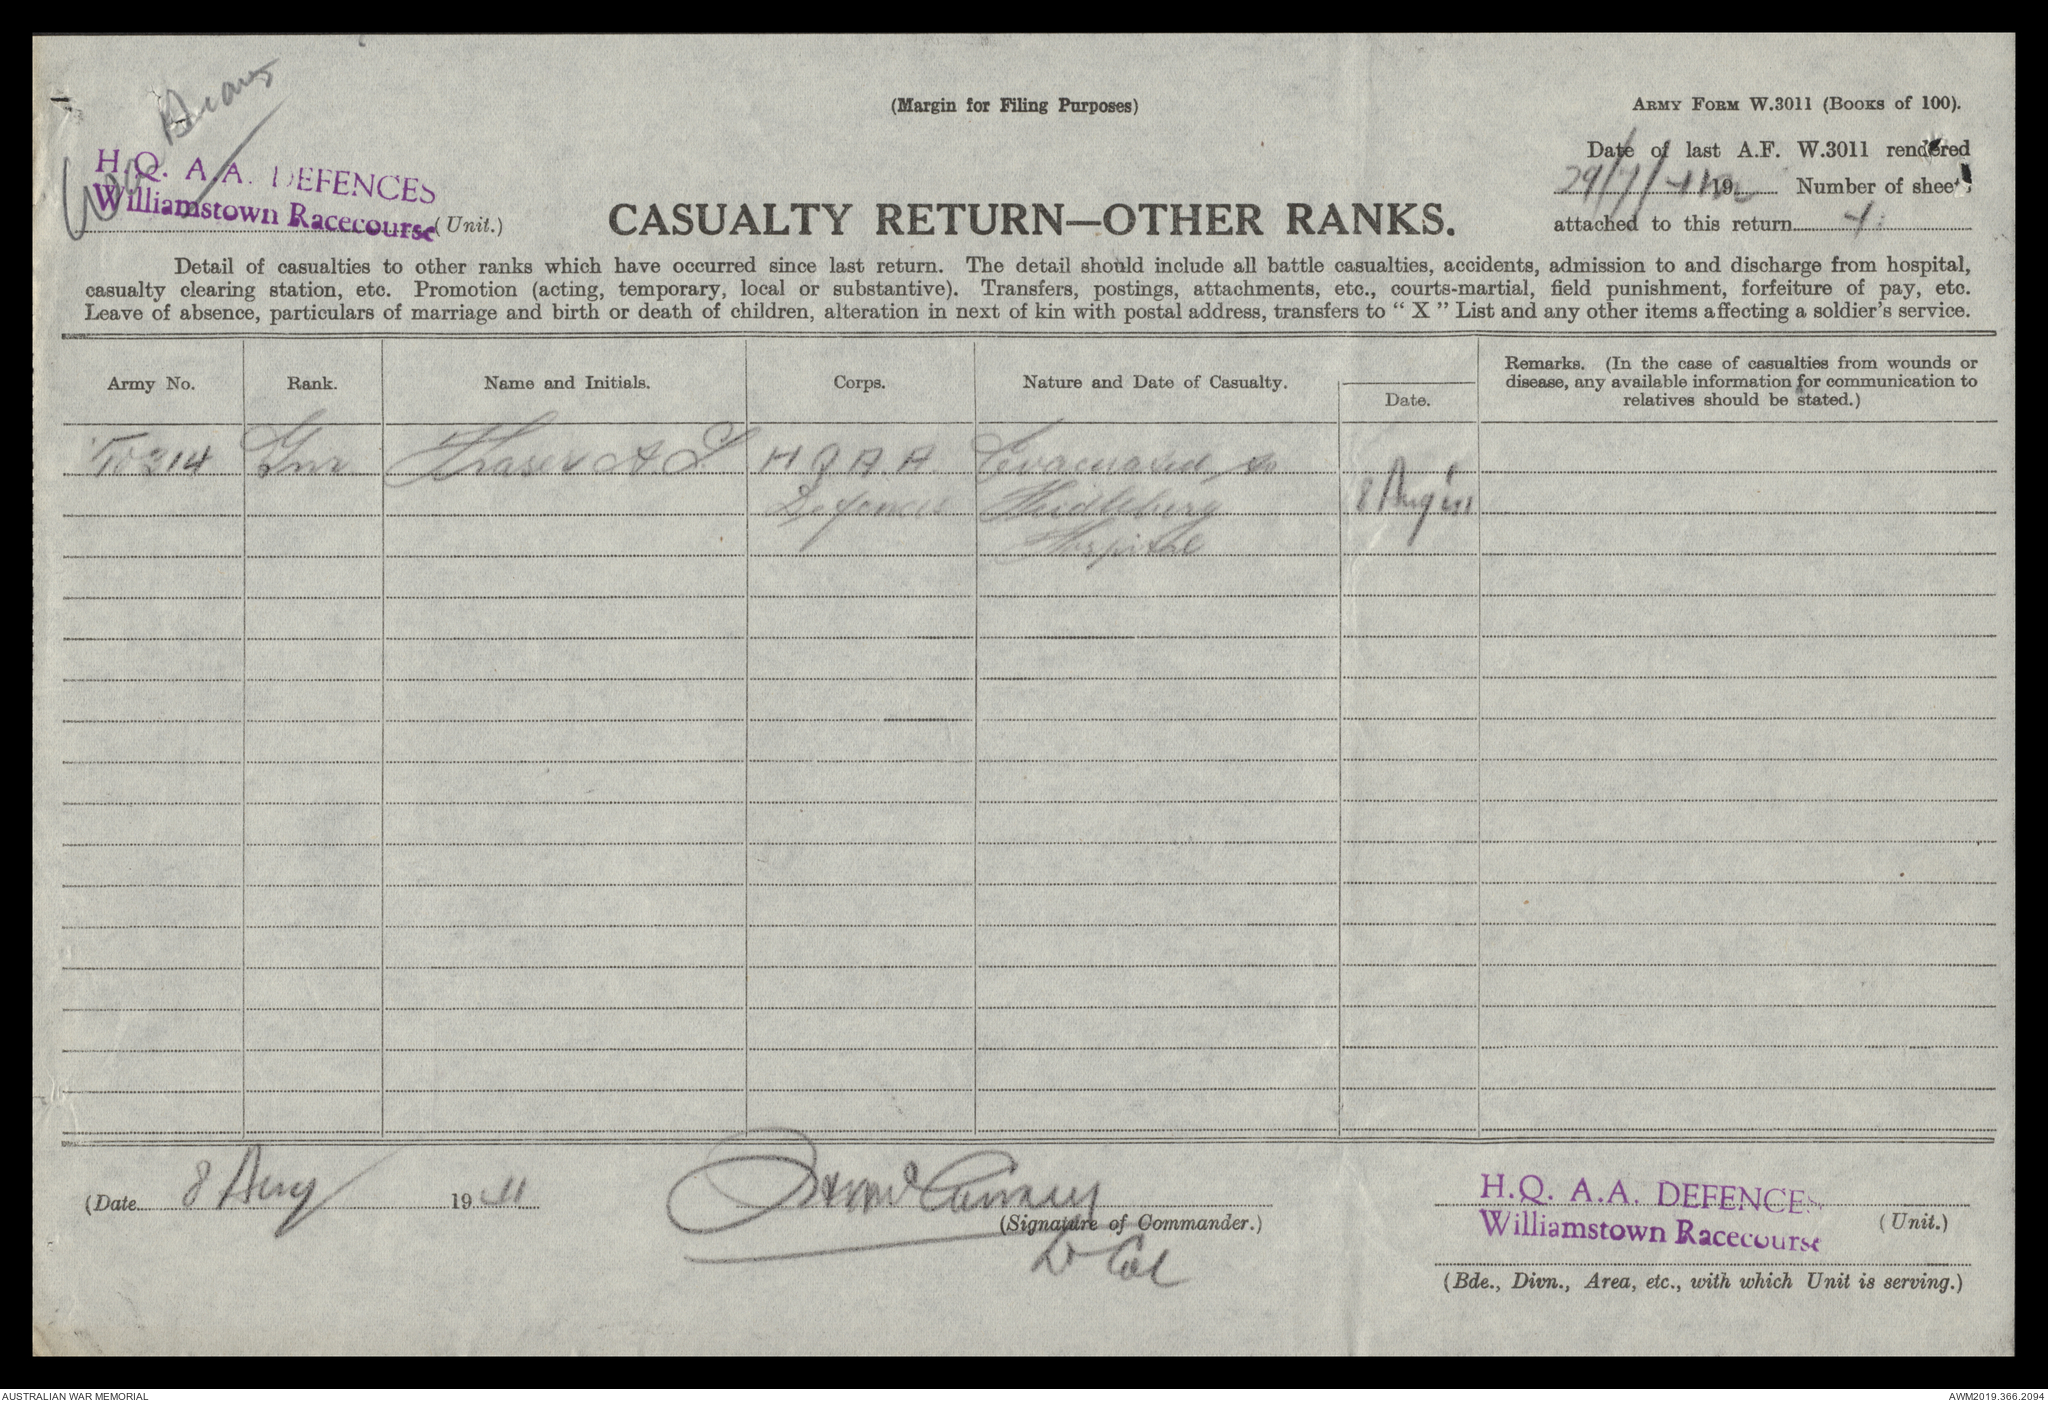 (Margin for Filing Purposes)
ARMY FORM W.3011 (BOOKS OF 100).
H.Q. A.A. DEFENCES
Williamstown Racecourse (Unit.)
CASUALTY RETURN—OTHER RANKS.
Date of last A.F. W.3011 rendered
29/7/41 19 Number of sheets
attached to this return
Detail of casualties to other ranks which have occurred since last return. The detail should include all battle casualties, accidents, admission to and discharge from hospital,
casualty clearing station, etc. Promotion (acting, temporary, local or substantive). Transfers, postings, attachments, etc., courts-martial, field punishment, forfeiture of pay, etc.
Leave of absence, particulars of marriage and birth or death of children, alteration in next of kin with postal address, transfers to “ X ” List and any other items affecting a soldier’s service.
Army No. Rank. Name and Initials. Corps. Nature and Date of Casualty. Date. Remarks. (In the case of casualties from wounds or
disease, any available information for communication to
relatives should be stated.)
Gnr Fraser A L H Q A A Evacuated to
Defences Heidleburg 8 Aug 41
Hospital
(Date 8 Aug 1941
(Signature of Commander.)
Lt Col
H.Q. A.A. DEFENCES
Williamstown Racecourse (Unit.)
(Bde., Divn., Area, etc., with which Unit is serving.)
AUSTRALIAN WAR MEMORIAL AWM2019.366.2094